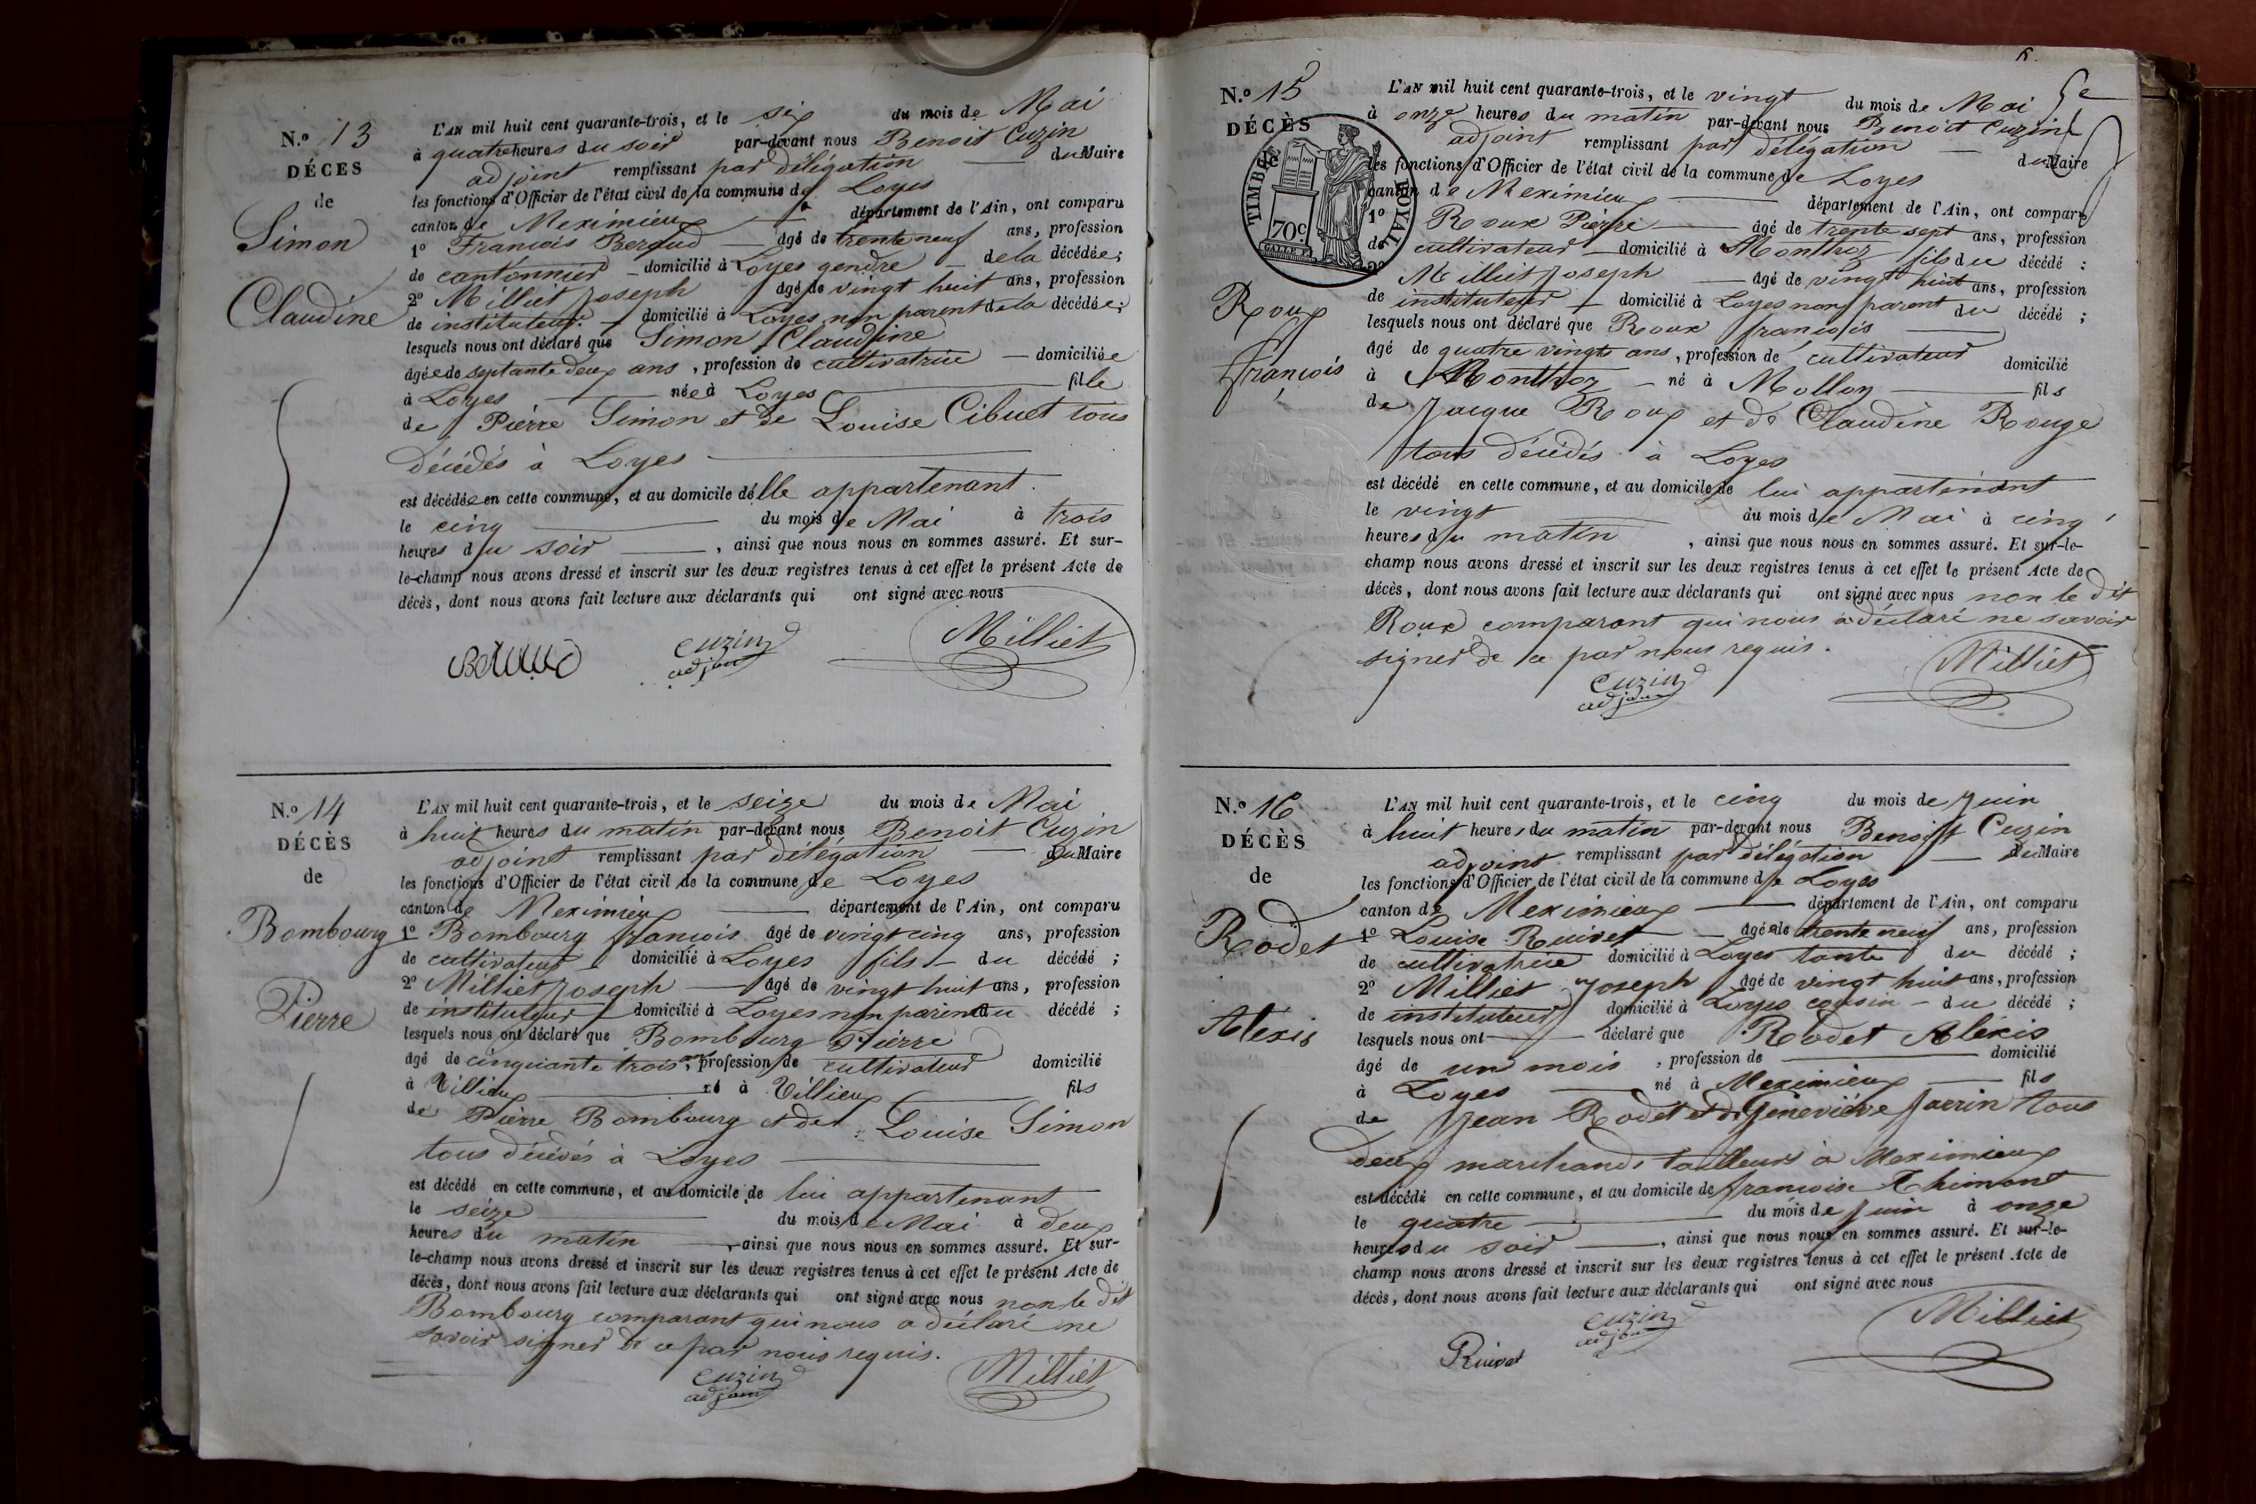 N.º 13
DÉCES
de
Simon
Claudine
L'AN mil huit cent quarante-trois, et le six du mois de Mai
à quatre heures du soir par-devant nous Benoit Cuzin
adjoint remplissant par délégation du Maire
les fonctions d'Officier de l'état civil de la commune de Loyes
canton de Meximieux département de l'Ain, ont comparu
1º Francois Beraud âgé de trente neuf ans, profession
de cantonnier domicilié à Loyes gendre de la décédée;
2º Milliet Joseph âgé de vingt huit ans, profession
de instituteur domicilié à Loyes non parent de la décédée;
lesquels nous ont déclaré que Simon Claudine
âgée de septante deux ans, profession de cultivatrice domiciliée
à Loyes née à Loyes fille
de Pierre Simon et de Louise Cibuet tous
décédés à Loyes
est décédée en cette commune, et au domicile d'elle appartenant.
le cinq du mois de Mai à trois
heures du soir, ainsi que nous nous en sommes assuré. Et sur-
le-champ nous avons dressé et inscrit sur les deux registres tenus à cet effet le présent Acte de
décès, dont nous avons fait lecture aux déclarants qui ont signé avec nous
Beraud Cuzin Milliet
adjoint
N.º 14
DÉCÈS
de
Bombourg
Pierre
L'AN mil huit cent quarante-trois, et le seize du mois de Mai
à huit heures du matin par-devant nous Benoit Cuzin
adjoint remplissant par délégation du Maire
les fonctions d'Officier de l'état civil de la commune de Loyes
canton de Meximieux département de l'Ain, ont comparu
1º Bombourg francois âgé de vingt cinq ans, profession
de cultivateur domicilié à Loyes fils du décédé;
2º Milliet Joseph âgé de vingt huit ans, profession
de instituteur domicilié à Loyes non parent du décédé;
lesquels nous ont déclaré que Bombourg Pierre
âgé de cinquante trois ans, profession de cultivateur domicilié
à Villieux né à Villieux fils
de Pierre Bombourg et de Louise Simon
tous décédés à Loyes
est décédé en cette commune, et au domicile de lui appartenant
le seize du mois de Mai à deux
heures du matin, ainsi que nous nous en sommes assuré. Et sur-
le-champ nous avons dressé et inscrit sur les deux registres tenus à cet effet le présent Acte de
décès, dont nous avons fait lecture aux déclarants qui ont signé avec nous non le dit
Bombourg comparant qui nous a déclaré ne
savoir signer de ce par nous requis.
Cuzin Milliet
adjoint
6.
5e
N.º 15
DÉCÈS
de
TIMBRE ROYAL
70c
Roux
françois
L'AN mil huit cent quarante-trois, et le vingt du mois de Mai
à onze heures du matin par-devant nous Benoit Cuzin
adjoint remplissant par délégation du Maire
les fonctions d'Officier de l'état civil de la commune de Loyes
canton de Meximieux département de l'Ain, ont comparu
1º Roux Pierre âgé de trente sept ans, profession
de cultivateur domicilié à Monthoz fils du décédé;
2º Milliet Joseph âgé de vingt huit ans, profession
de instituteur domicilié à Loyes non parent du décédé;
lesquels nous ont déclaré que Roux françois
âgé de quatre vingts ans, profession de cultivateur domicilié
à Monthoz né à Mollon fils
de Jacque Roux et de Claudine Rouge
tous décédés à Loyes
est décédé en cette commune, et au domicile de lui appartenant
le vingt du mois de Mai à cinq
heures du matin, ainsi que nous nous en sommes assuré. Et sur-le-
champ nous avons dressé et inscrit sur les deux registres tenus à cet effet le présent Acte de
décès, dont nous avons fait lecture aux déclarants qui ont signé avec nous non le dit
Roux comparant qui nous a déclaré ne savoir
signer de ce par nous requis.
Cuzin Milliet
adjoint
N.º 16
DÉCÈS
de
Rodet
Alexis
L'AN mil huit cent quarante-trois, et le cinq du mois de Juin
à huit heures du matin par-devant nous Benoit Cuzin
adjoint remplissant par délégation du Maire
les fonctions d'Officier de l'état civil de la commune de Loyes
canton de Meximieux département de l'Ain, ont comparu
1º Louise Ruivet âgée de trente neuf ans, profession
de cultivatrice domicilié à Loyes tante du décédé;
2º Milliet Joseph âgé de vingt huit ans, profession
de instituteur domicilié à Loyes cousin du décédé;
lesquels nous ont déclaré que Rodet Alexis
âgé de un mois, profession de domicilié
à Loyes né à Meximieux fils
de Jean Rodet et de Geneviéve Jacrin tous
deux marchands tailleurs à Meximieux
est décédé en cette commune, et au domicile de francoise Thimont
le quatre du mois de Juin à onze
heures du soir, ainsi que nous nous en sommes assuré. Et sur-le-
champ nous avons dressé et inscrit sur les deux registres tenus à cet effet le présent Acte de
décès, dont nous avons fait lecture aux déclarants qui ont signé avec nous
Ruivet Cuzin Milliet
adjoint